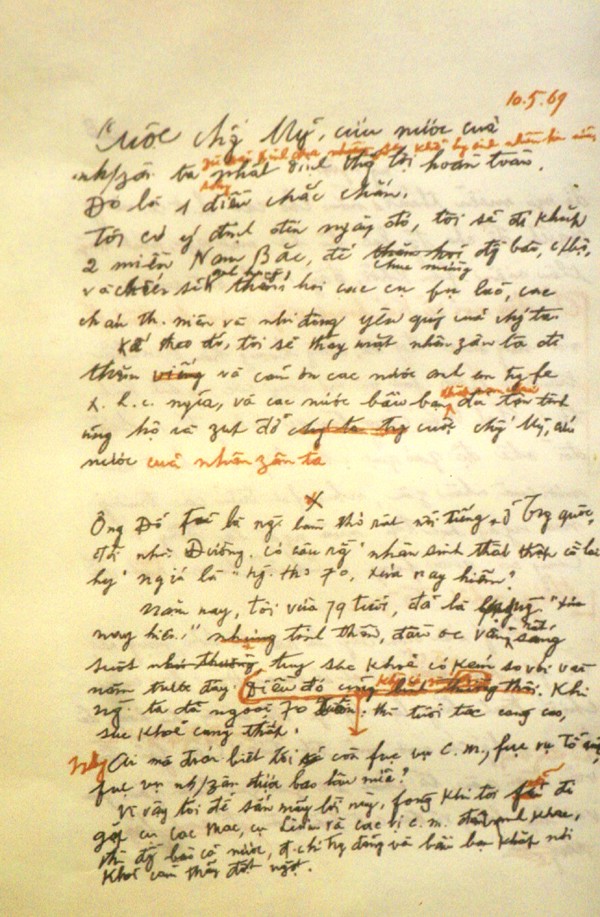 10.5.69
Cuộc chống Mỹ, cứu nước của
nh/zân ta phải nhất định thắng lợi hoàn toàn.
Đó là 1 điều chắc chắn.
Tôi có ý định đến ngày đó, tôi sẽ đi khắp
2 miền Nam Bắc, để thăm hỏi đồng bào, c/bộ,
chúc mừng
và chiến sĩ anh hùng, thăm hỏi các cụ fụ lão, các
cháu th. niên và nhi đồng yêu quý của chúng ta.
Kế theo đó, tôi sẽ thay mặt nhân zân ta đi
thăm viếng và cám ơn các nước anh em trong fe
x. h. c. nghĩa, và các nước bầu bạn đã tận tình
ủng hộ và júp đỡ cuộc chống Mỹ, cứu
nước của nhân zân ta
X
Ông Đỗ Fủ là người làm thơ rất nổi tiếng ở Trung quốc,
đời nhà Đường. Có câu rằng "nhân sinh thất thập cổ lai
hy" nghĩa là "người thọ 70, xưa nay hiếm".
Năm nay, tôi vừa 79 tuổi, đã là hạng "xưa
nay hiếm", nhưng tinh thần, đầu óc vẫn rất sáng
suốt, tuy sức khoẻ có kém so với vài
năm trước đây. Điều đó cũng bình thường thôi. Khi
người ta đã ngoài 70 xuân, thì tuổi tác càng cao,
sức khoẻ càng thấp.
Nhưng Ai mà đoán biết tôi sẽ còn fục vụ c.m., fục vụ Tổ quốc,
fục vụ nh/zân được bao lâu nữa?
Vì vậy tôi để sẵn mấy lời này, fòng khi tôi sẽ đi
gặp cụ Các Mác, cụ Lênin và các vị c.m. đàn anh khác,
thì đồng bào cả nước, đ.chí trong đảng và bầu bạn khắp nơi
khỏi cảm thấy đột ngột.